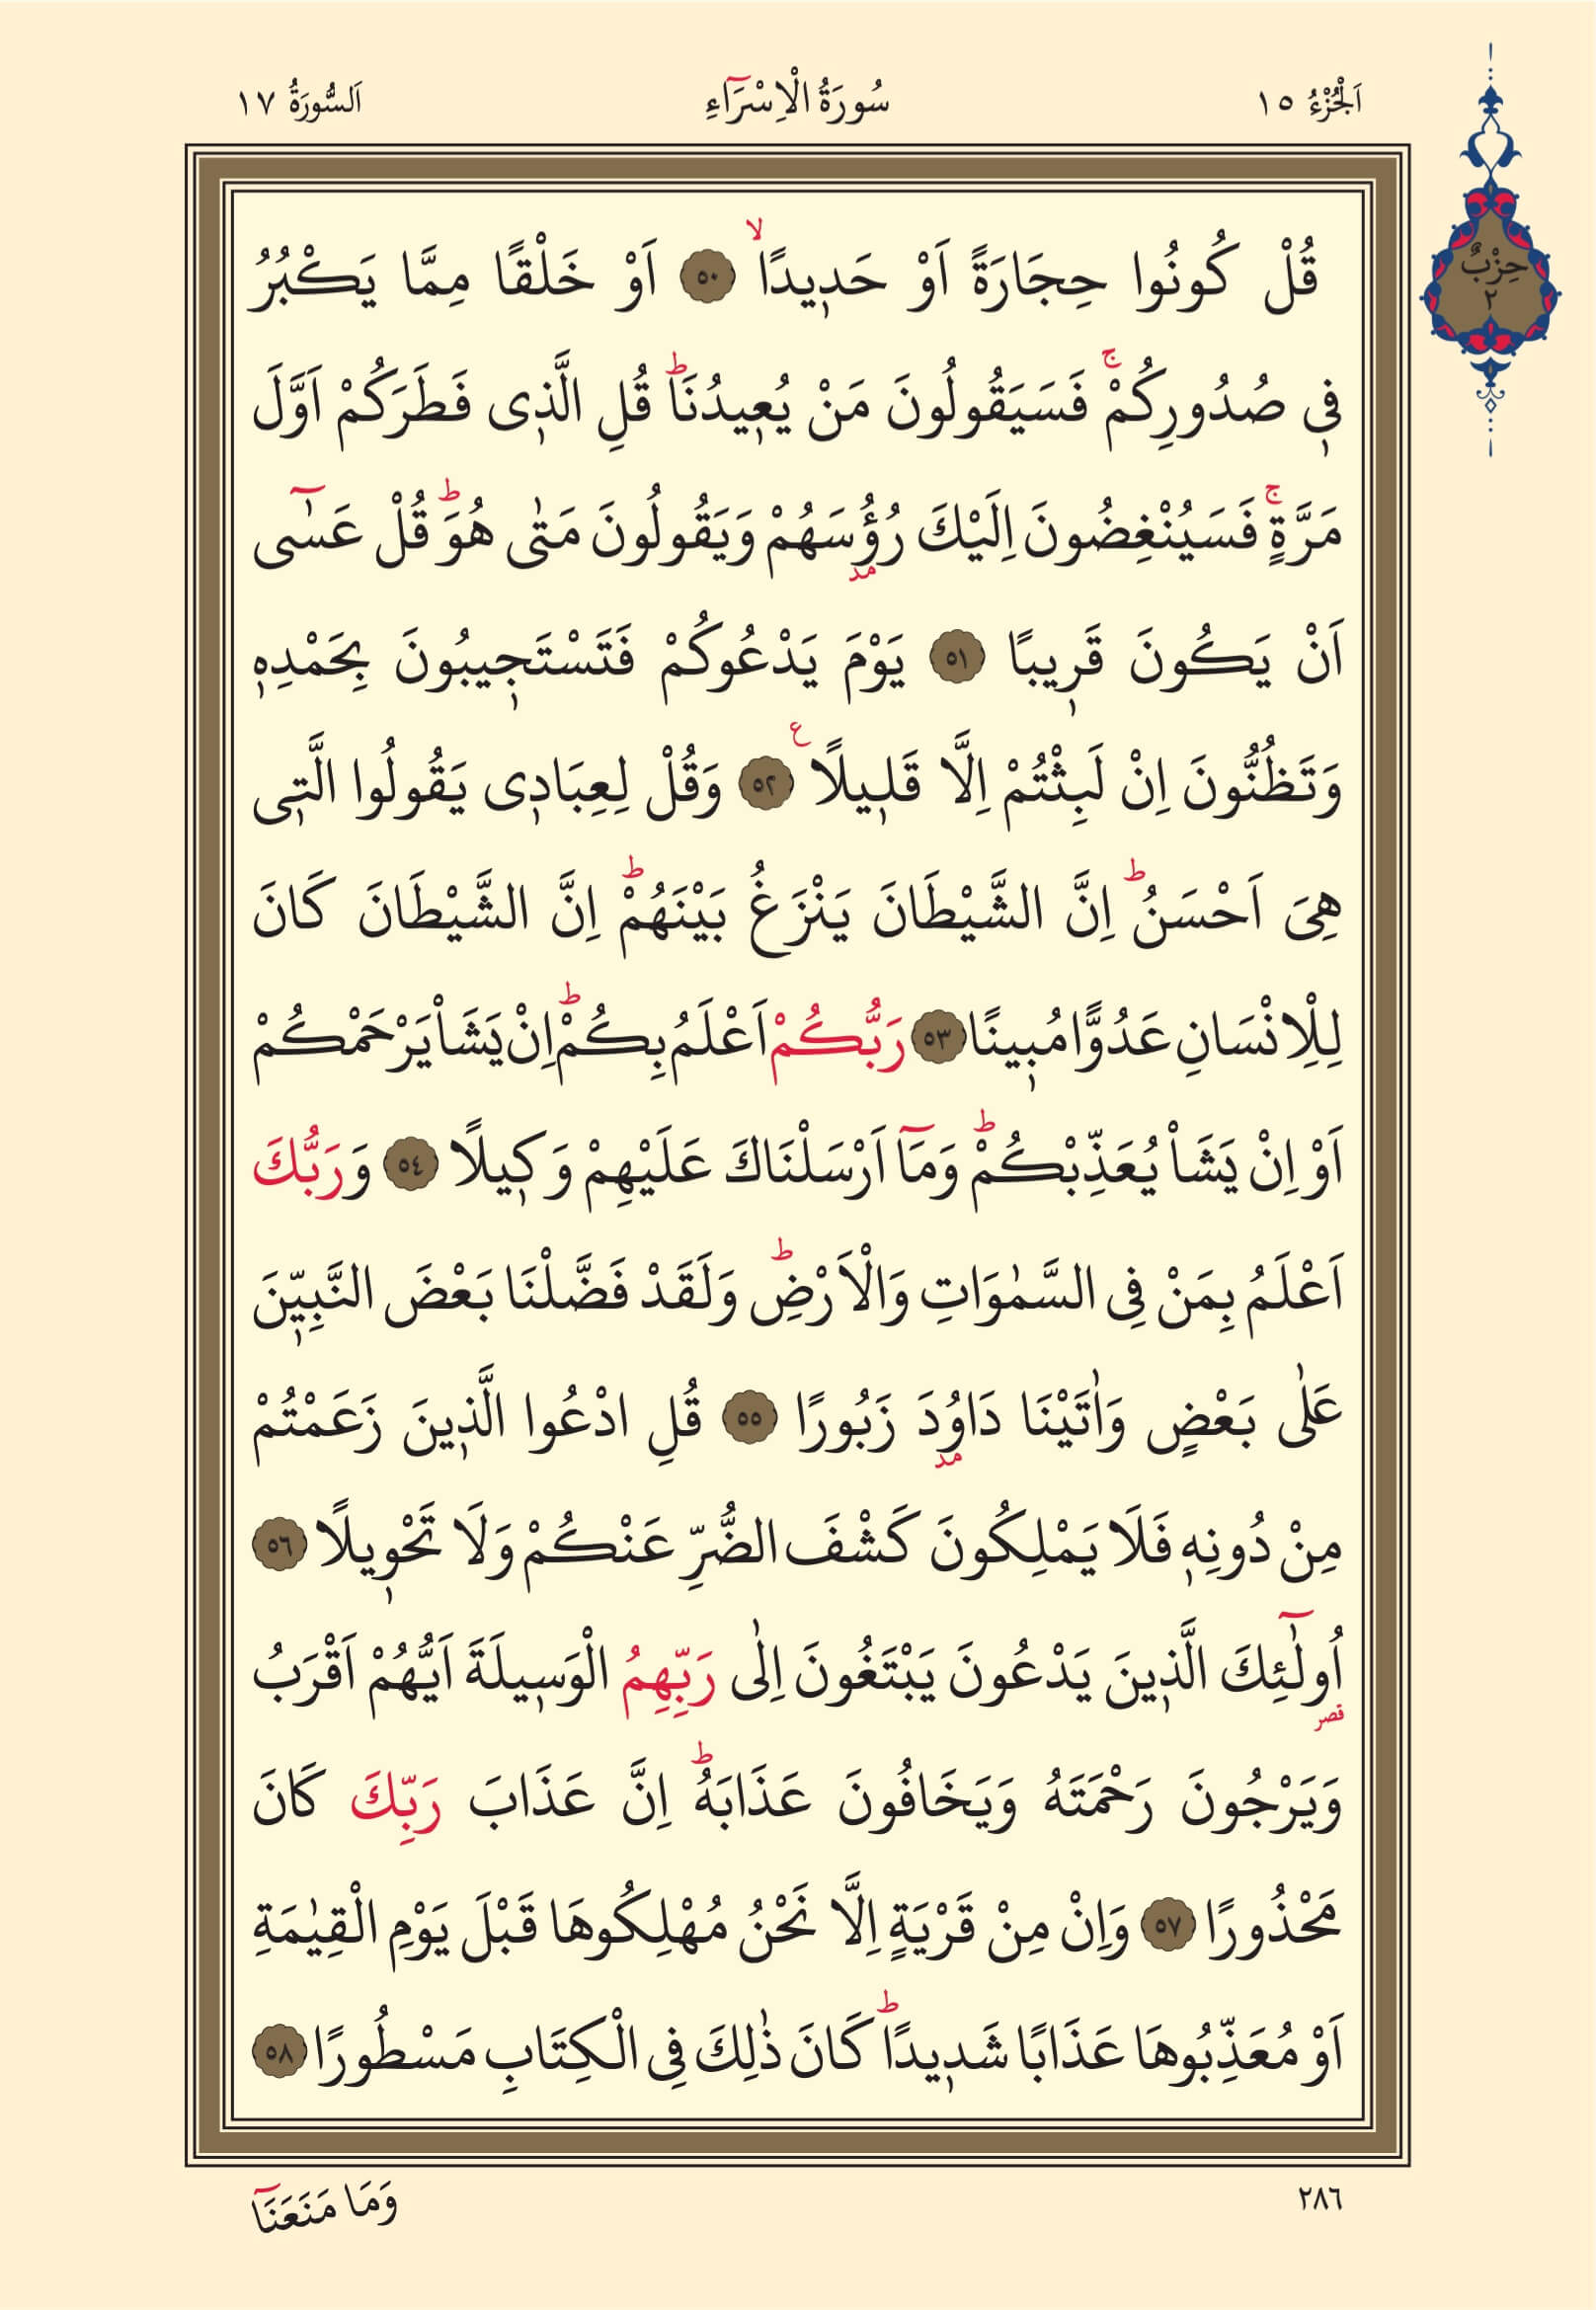 اَلْجُزْءُ ١٥
سُورَةُ الْاِسْرَٓاءِ
اَلسُّورَةُ ١٧
حِزْبٌ
٢
قُلْ كُونُوا حِجَارَةً اَوْ حَد۪يدًاۙ ﴿٥٠﴾ اَوْ خَلْقًا مِمَّا يَكْبُرُ
ف۪ي صُدُورِكُمْۚ فَسَيَقُولُونَ مَنْ يُع۪يدُنَاۜ قُلِ الَّذ۪ي فَطَرَكُمْ اَوَّلَ
مَرَّةٍۚ فَسَيُنْغِضُونَ اِلَيْكَ رُؤُ۫سَهُمْ وَيَقُولُونَ مَتٰى هُوَۜ قُلْ عَسٰٓى
اَنْ يَكُونَ قَر۪يبًا ﴿٥١﴾ يَوْمَ يَدْعُوكُمْ فَتَسْتَج۪يبُونَ بِحَمْدِه۪
وَتَظُنُّونَ اِنْ لَبِثْتُمْ اِلَّا قَل۪يلًا ع ﴿٥٢﴾ وَقُلْ لِعِبَاد۪ي يَقُولُوا الَّت۪ي
هِيَ اَحْسَنُۜ اِنَّ الشَّيْطَانَ يَنْزَغُ بَيْنَهُمْۜ اِنَّ الشَّيْطَانَ كَانَ
لِلْاِنْسَانِ عَدُوًّا مُب۪ينًا ﴿٥٣﴾ رَبُّكُمْ اَعْلَمُ بِكُمْۜ اِنْ يَشَأْ يَرْحَمْكُمْ
اَوْ اِنْ يَشَأْ يُعَذِّبْكُمْۜ وَمَٓا اَرْسَلْنَاكَ عَلَيْهِمْ وَك۪يلًا ﴿٥٤﴾ وَرَبُّكَ
اَعْلَمُ بِمَنْ فِي السَّمٰوَاتِ وَالْاَرْضِۜ وَلَقَدْ فَضَّلْنَا بَعْضَ النَّبِيّ۪نَ
عَلٰى بَعْضٍ وَاٰتَيْنَا دَاوُ۫دَ زَبُورًا ﴿٥٥﴾ قُلِ ادْعُوا الَّذ۪ينَ زَعَمْتُمْ
مِنْ دُونِه۪ فَلَا يَمْلِكُونَ كَشْفَ الضُّرِّ عَنْكُمْ وَلَا تَحْو۪يلًا ﴿٥٦﴾
اُو۬لٰٓئِكَ الَّذ۪ينَ يَدْعُونَ يَبْتَغُونَ اِلٰى رَبِّهِمُ الْوَس۪يلَةَ اَيُّهُمْ اَقْرَبُ
وَيَرْجُونَ رَحْمَتَهُ وَيَخَافُونَ عَذَابَهُۜ اِنَّ عَذَابَ رَبِّكَ كَانَ
مَحْذُورًا ﴿٥٧﴾ وَاِنْ مِنْ قَرْيَةٍ اِلَّا نَحْنُ مُهْلِكُوهَا قَبْلَ يَوْمِ الْقِيٰمَةِ
اَوْ مُعَذِّبُوهَا عَذَابًا شَد۪يدًاۜ كَانَ ذٰلِكَ فِي الْكِتَابِ مَسْطُورًا ﴿٥٨﴾
٢٨٦
وَمَا مَنَعَنَٓا